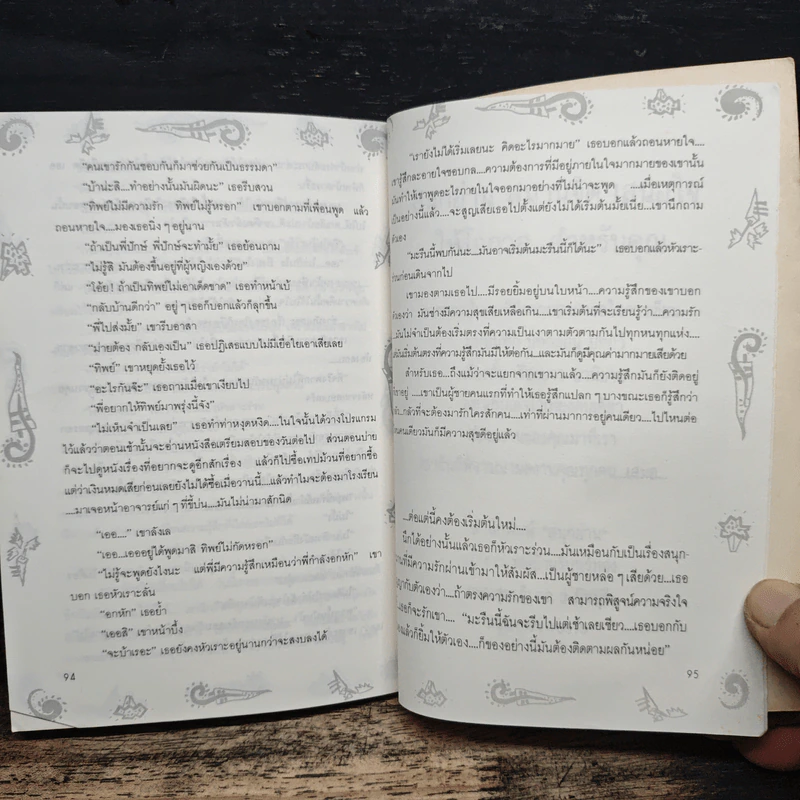 “คนเขารักกันชอบกันก็มาช่วยกันเป็นธรรมดา”
“บ้าน่ะสิ....ทำอย่างนั้นมันผิดนะ” เธอรีบสวน
“ทิพย์ไม่มีความรัก ทิพย์ไม่รู้หรอก” เขาบอกตามที่เพื่อนพูด แล้ว
ถอนหายใจ...มองเธอนิ่ง ๆ อยู่นาน
“ถ้าเป็นพี่ปักษ์ พี่ปักษ์จะทำมั้ย” เธอย้อนถาม
“ไม่รู้สิ มันต้องขึ้นอยู่ที่ผู้หญิงเองด้วย”
“โอ้ย! ถ้าเป็นทิพย์ไม่เอาเด็ดขาด” เธอทำหน้าเบ้
“กลับบ้านดีกว่า” อยู่ ๆ เธอก็บอกแล้วก็ลุกขึ้น
“พี่ไปส่งมั้ย” เขารีบอาสา
“ม่ายต้อง กลับเองเป็น” เธอปฏิเสธแบบไม่มีเยื่อใยเอาเสียเลย
“ทิพย์” เขาหยุดยั้งเธอไว้
“อะไรกันจ๊ะ” เธอถามเมื่อเขาเงียบไป
“พี่อยากให้ทิพย์มาพรุ่งนี้จัง”
“ไม่เห็นจำเป็นเลย” เธอทำท่าหงุดหงิด....ในใจนั้นได้วางโปรแกรม
ไว้แล้วว่าตอนเช้านั้นจะอ่านหนังสือเตรียมสอบของวันต่อไป ส่วนตอนบ่าย
ก็จะไปดูหนังเรื่องที่อยากจะดูอีกสักเรื่อง แล้วก็ไปซื้อเทปม้วนที่อยากซื้อ
แต่ว่าเงินหมดเสียก่อนเลยยังไม่ได้ซื้อเมื่อวานนี้....แล้วทำไมจะต้องมาโรงเรียน
....มาเจอหน้าอาจารย์แก่ ๆ ที่ขี้บ่น....มันไม่น่ามาสักนิด
“เออ....” เขาลังเล
“เออ...เอออยู่ได้พูดมาสิ ทิพย์ไม่กัดหรอก”
“ไม่รู้จะพูดยังไงนะ แต่พี่มีความรู้สึกเหมือนว่าพี่กำลังอกหัก” เขา
บอก เธอหัวเราะลั่น
“อกหัก” เธอย้ำ
“เออสิ” เขาหน้าบึ้ง
“จะบ้าเรอะ” เธอยังคงหัวเราะอยู่นานกว่าจะสงบลงได้
94
“เรายังไม่ได้เริ่มเลยนะ คิดอะไรมากมาย” เธอบอกแล้วถอนหายใจ....
เขารู้สึกละอายใจชอบกล....ความต้องการที่มีอยู่ภายในใจมากมายของเขานั้น
มันทำให้เขาพูดอะไรภายในใจออกมาอย่างที่ไม่น่าจะพูด ....เมื่อเหตุการณ์
เป็นอย่างนี้แล้ว....จะสูญเสียเธอไปตั้งแต่ยังไม่ได้เริ่มต้นมั้ยเนี่ย....เขานึกถาม
ตัวเอง
“มะรืนนี้พบกันนะ...มันอาจเริ่มต้นมะรืนนี้ก็ได้นะ” เธอบอกแล้วหัวเราะ-
ร่วนก่อนเดินจากไป
เขามองตามเธอไป....มีรอยยิ้มอยู่บนใบหน้า....ความรู้สึกของเขาบอก
ตัวเองว่า มันช่างมีความสุขเสียเหลือเกิน....เขาเริ่มต้นที่จะเรียนรู้ว่า....ความรัก
นั้นไม่จำเป็นต้องเริ่มตรงที่ความเป็นเงาตามตัวตามกันไปทุกหนทุกแห่ง....
แต่มันเริ่มต้นตรงที่ความรู้สึกมันมีให้ต่อกัน...และมันก็ดูมีคุณค่ามากมายเสียด้วย
สำหรับเธอ...ถึงแม้ว่าจะแยกจากเขามาแล้ว....ความรู้สึกมันก็ยังติดอยู่
ที่เขาอยู่ ....เขาเป็นผู้ชายคนแรกที่ทำให้เธอรู้สึกแปลก ๆ บางขณะเธอก็รู้สึกว่า
กลัวที่จะต้องมารักใครสักคน....เท่าที่ผ่านมาการอยู่คนเดียว....ไปไหนต่อ
คนเดียวมันก็มีความสุขดีอยู่แล้ว
...ต่อแต่นี้คงต้องเริ่มต้นใหม่....
นึกได้อย่างนั้นแล้วเธอก็หัวเราะร่วน....มันเหมือนกับเป็นเรื่องสนุก-
ที่มีความรักผ่านเข้ามาให้สัมผัส...เป็นผู้ชายหล่อ ๆ เสียด้วย...เธอ
กับตัวเองว่า....ถ้าตรงความรักของเขา สามารถพิสูจน์ความจริงใจ
เธอก็จะรักเขา.... “มะรืนนี้ฉันจะรีบไปแต่เช้าเลยเชียว....เธอบอกกับ
แล้วก็ยิ้มให้ตัวเอง....ก็ของอย่างนี้มันต้องติดตามผลกันหน่อย”
95